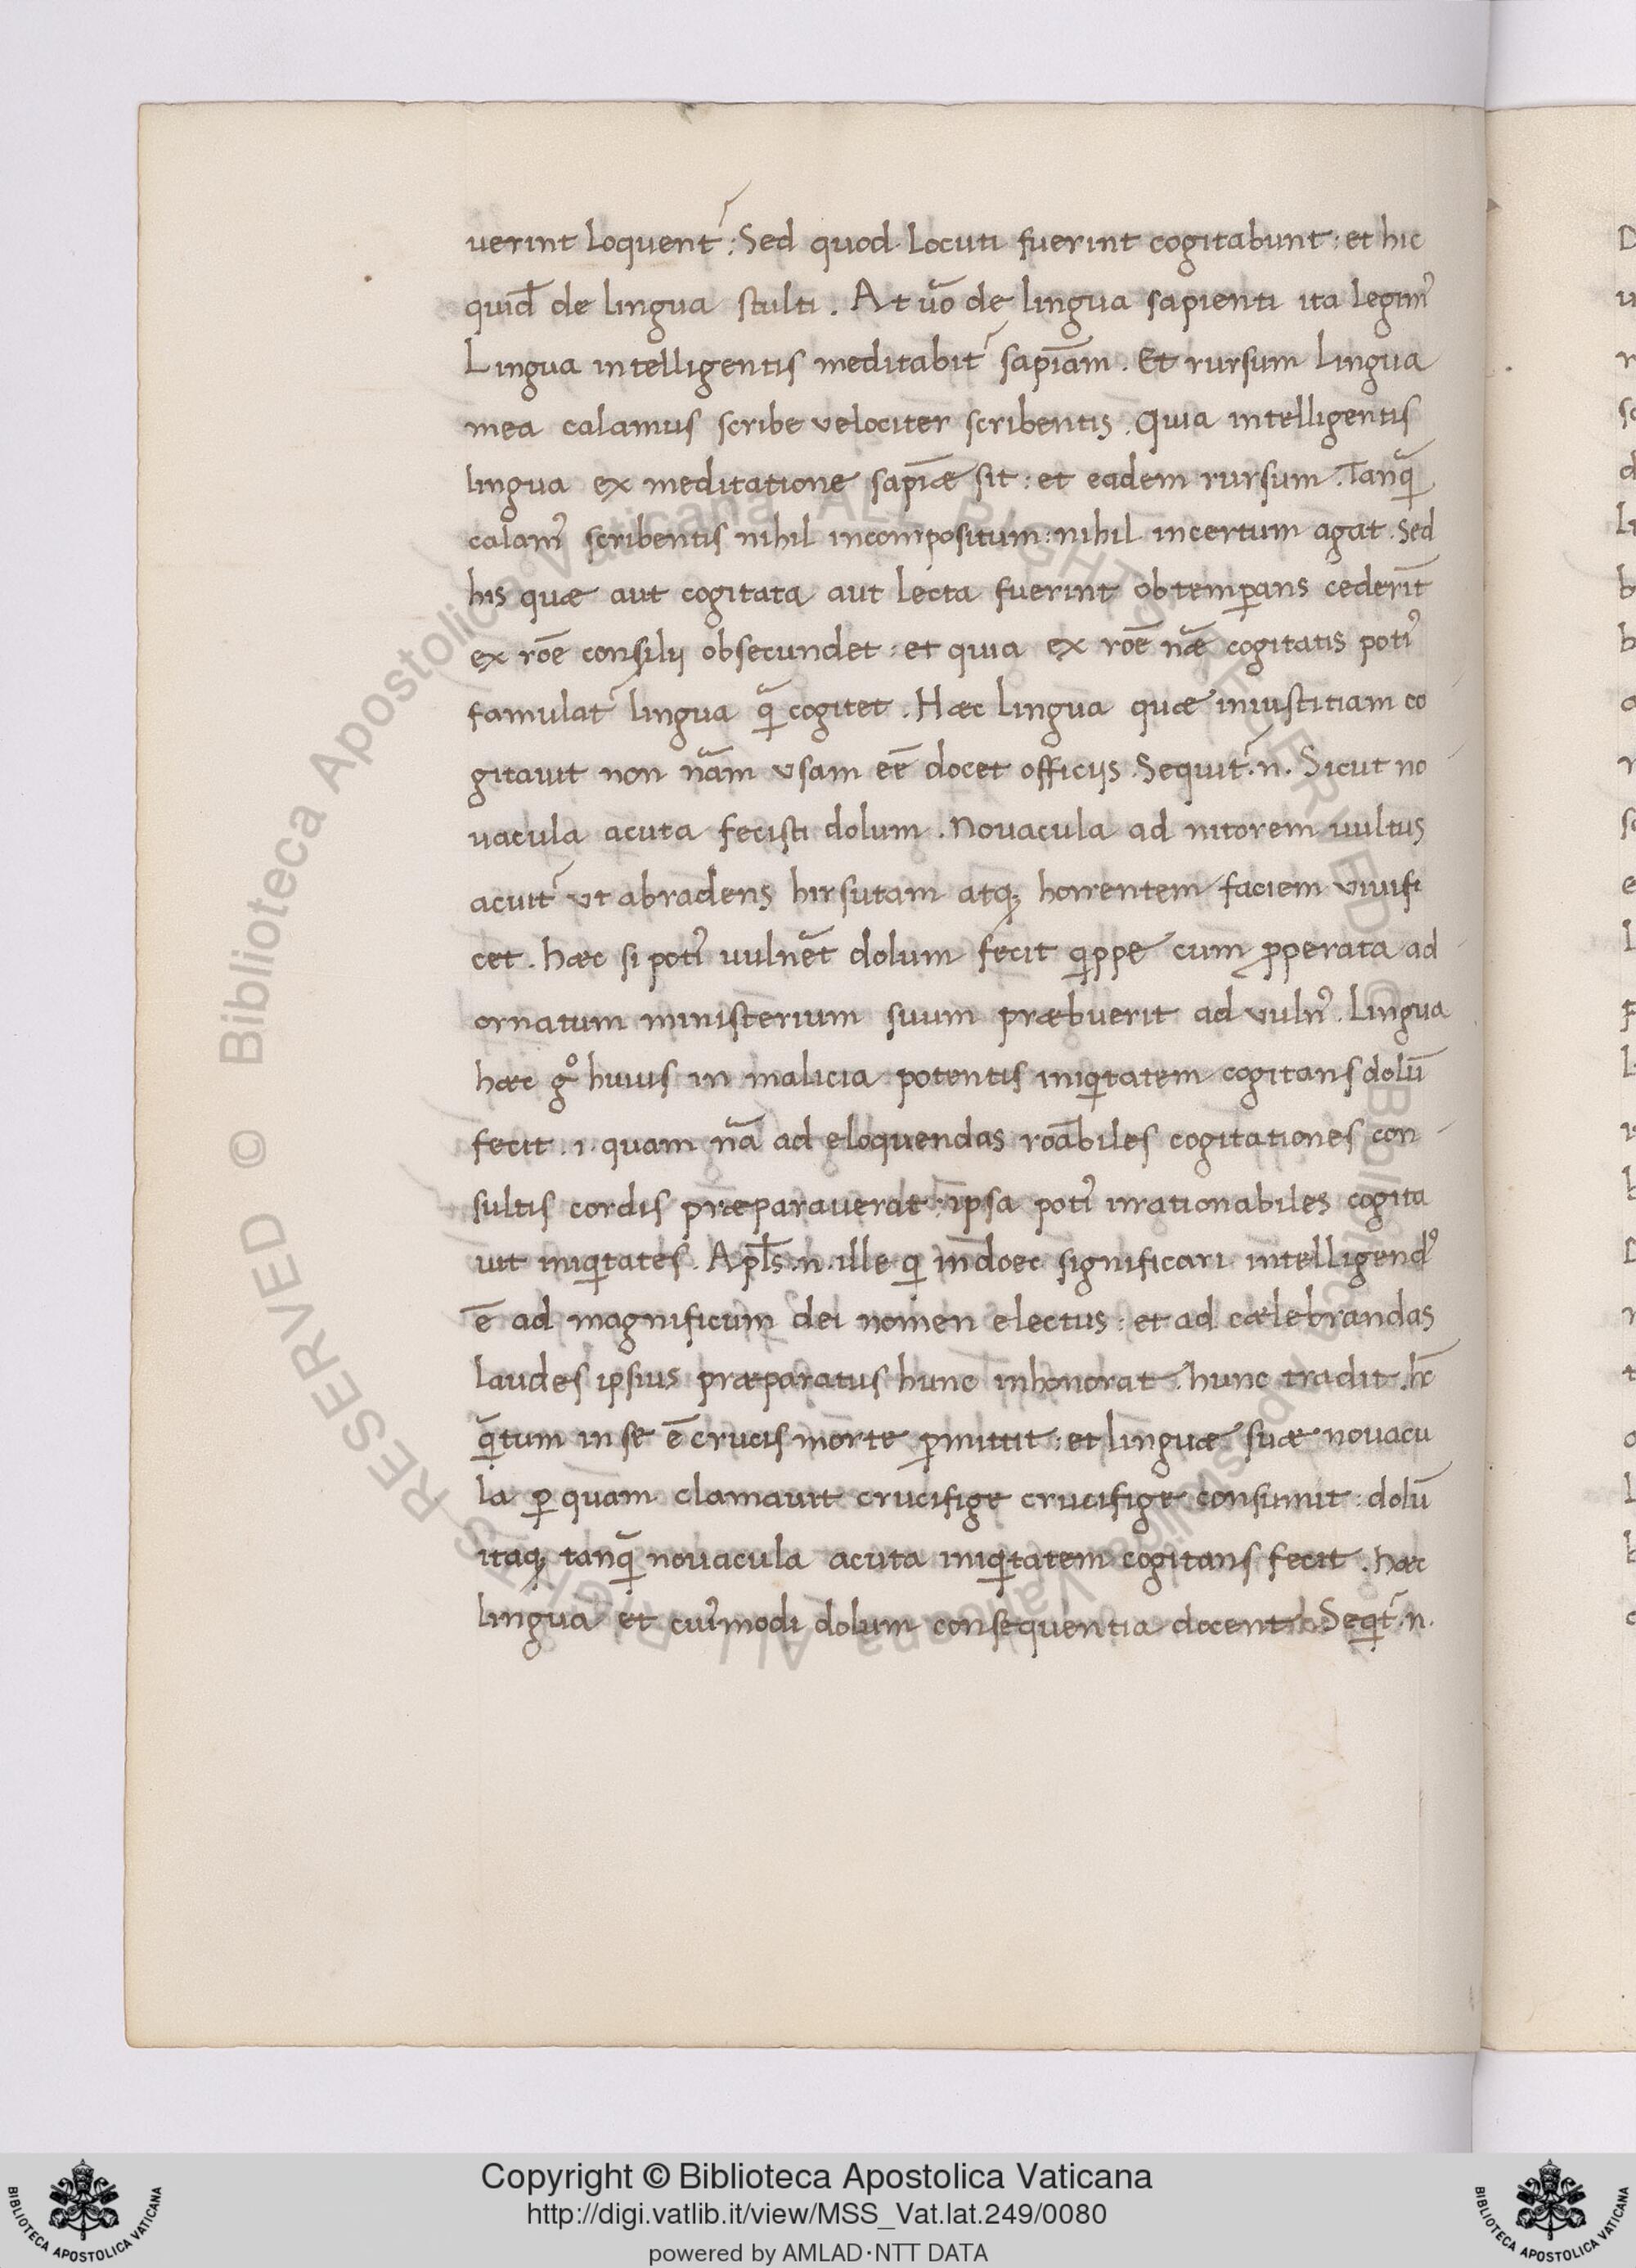 uerint loquent᷑: Sed quod locuti fuerint cogitabunt: et hic
quid̄ de lingua stulti. At ūo de lingua sapienti ita legimꝰ
Lingua intelligentis meditabit᷑ sapīam. Et rursum lingua
mea calamus scribe velociter scribentis. Quia intelligentis
lingua ex meditatione sapīæ sit: et eadem rursum. Tanq̄
calamꝰ scribentis nihil incompositum: nihil incertum agat. Sed
his quæ aut cogitata aut lecta fuerint obtemꝑans cederit̄
ex rōe consilij obsecundet: et quia ex rōe nāe cogitatis potiꝰ
famulat᷑ lingua q̄ cogitet. Hæc lingua quæ iniustitiam co
gitauit non nām vsam eē docet officijs. Sequit᷑.n. Sicut no
vacula acuta fecisti dolum. Nouacula ad nitorem uultus
acuit᷑ vt abradens hirsutam atq; horrentem faciem viuifi
cet. hæc si potiꝰ uulnēt dolum fecit qippe cum ꝓperata ad
ornatum ministerium suum præbuerit ad vulnꝰ. Lingua
hæc gͦ huius in malicia potentis iniqitatem cogitans dolū
fecit .i. quam nā ad eloquendas roābiles cogitationes con
sultis cordis præparauerat: ipsa potiꝰ irrationabiles cogita
uit iniqitates. Apl̄s.n. ille qi in doec significari intelligendꝰ
ē ad magnificum dei nomen electus: et ad cælebrandas
laudes ipsius præparatus hunc inhonorat. hunc tradit. hc̄
q̄tum in se ē crucis morte ꝑmittit: et linguæ suæ nouacu
la ꝑ quam clamauit crucifige crucifige consumit: dolū
itaq; tanq̄ nouacula acuta iniqitatem cogitans fecit. hæc
lingua et cuiꝰmodi dolum consequentia docent. Seqit᷑.n.
Copyright © Biblioteca Apostolica Vaticana
http://digi.vatlib.it/view/MSS_Vat.lat.249/0080
powered by AMLAD·NTT DATA
BIBLIOTECA APOSTOLICA VATICANA
BIBLIOTECA APOSTOLICA VATICANA